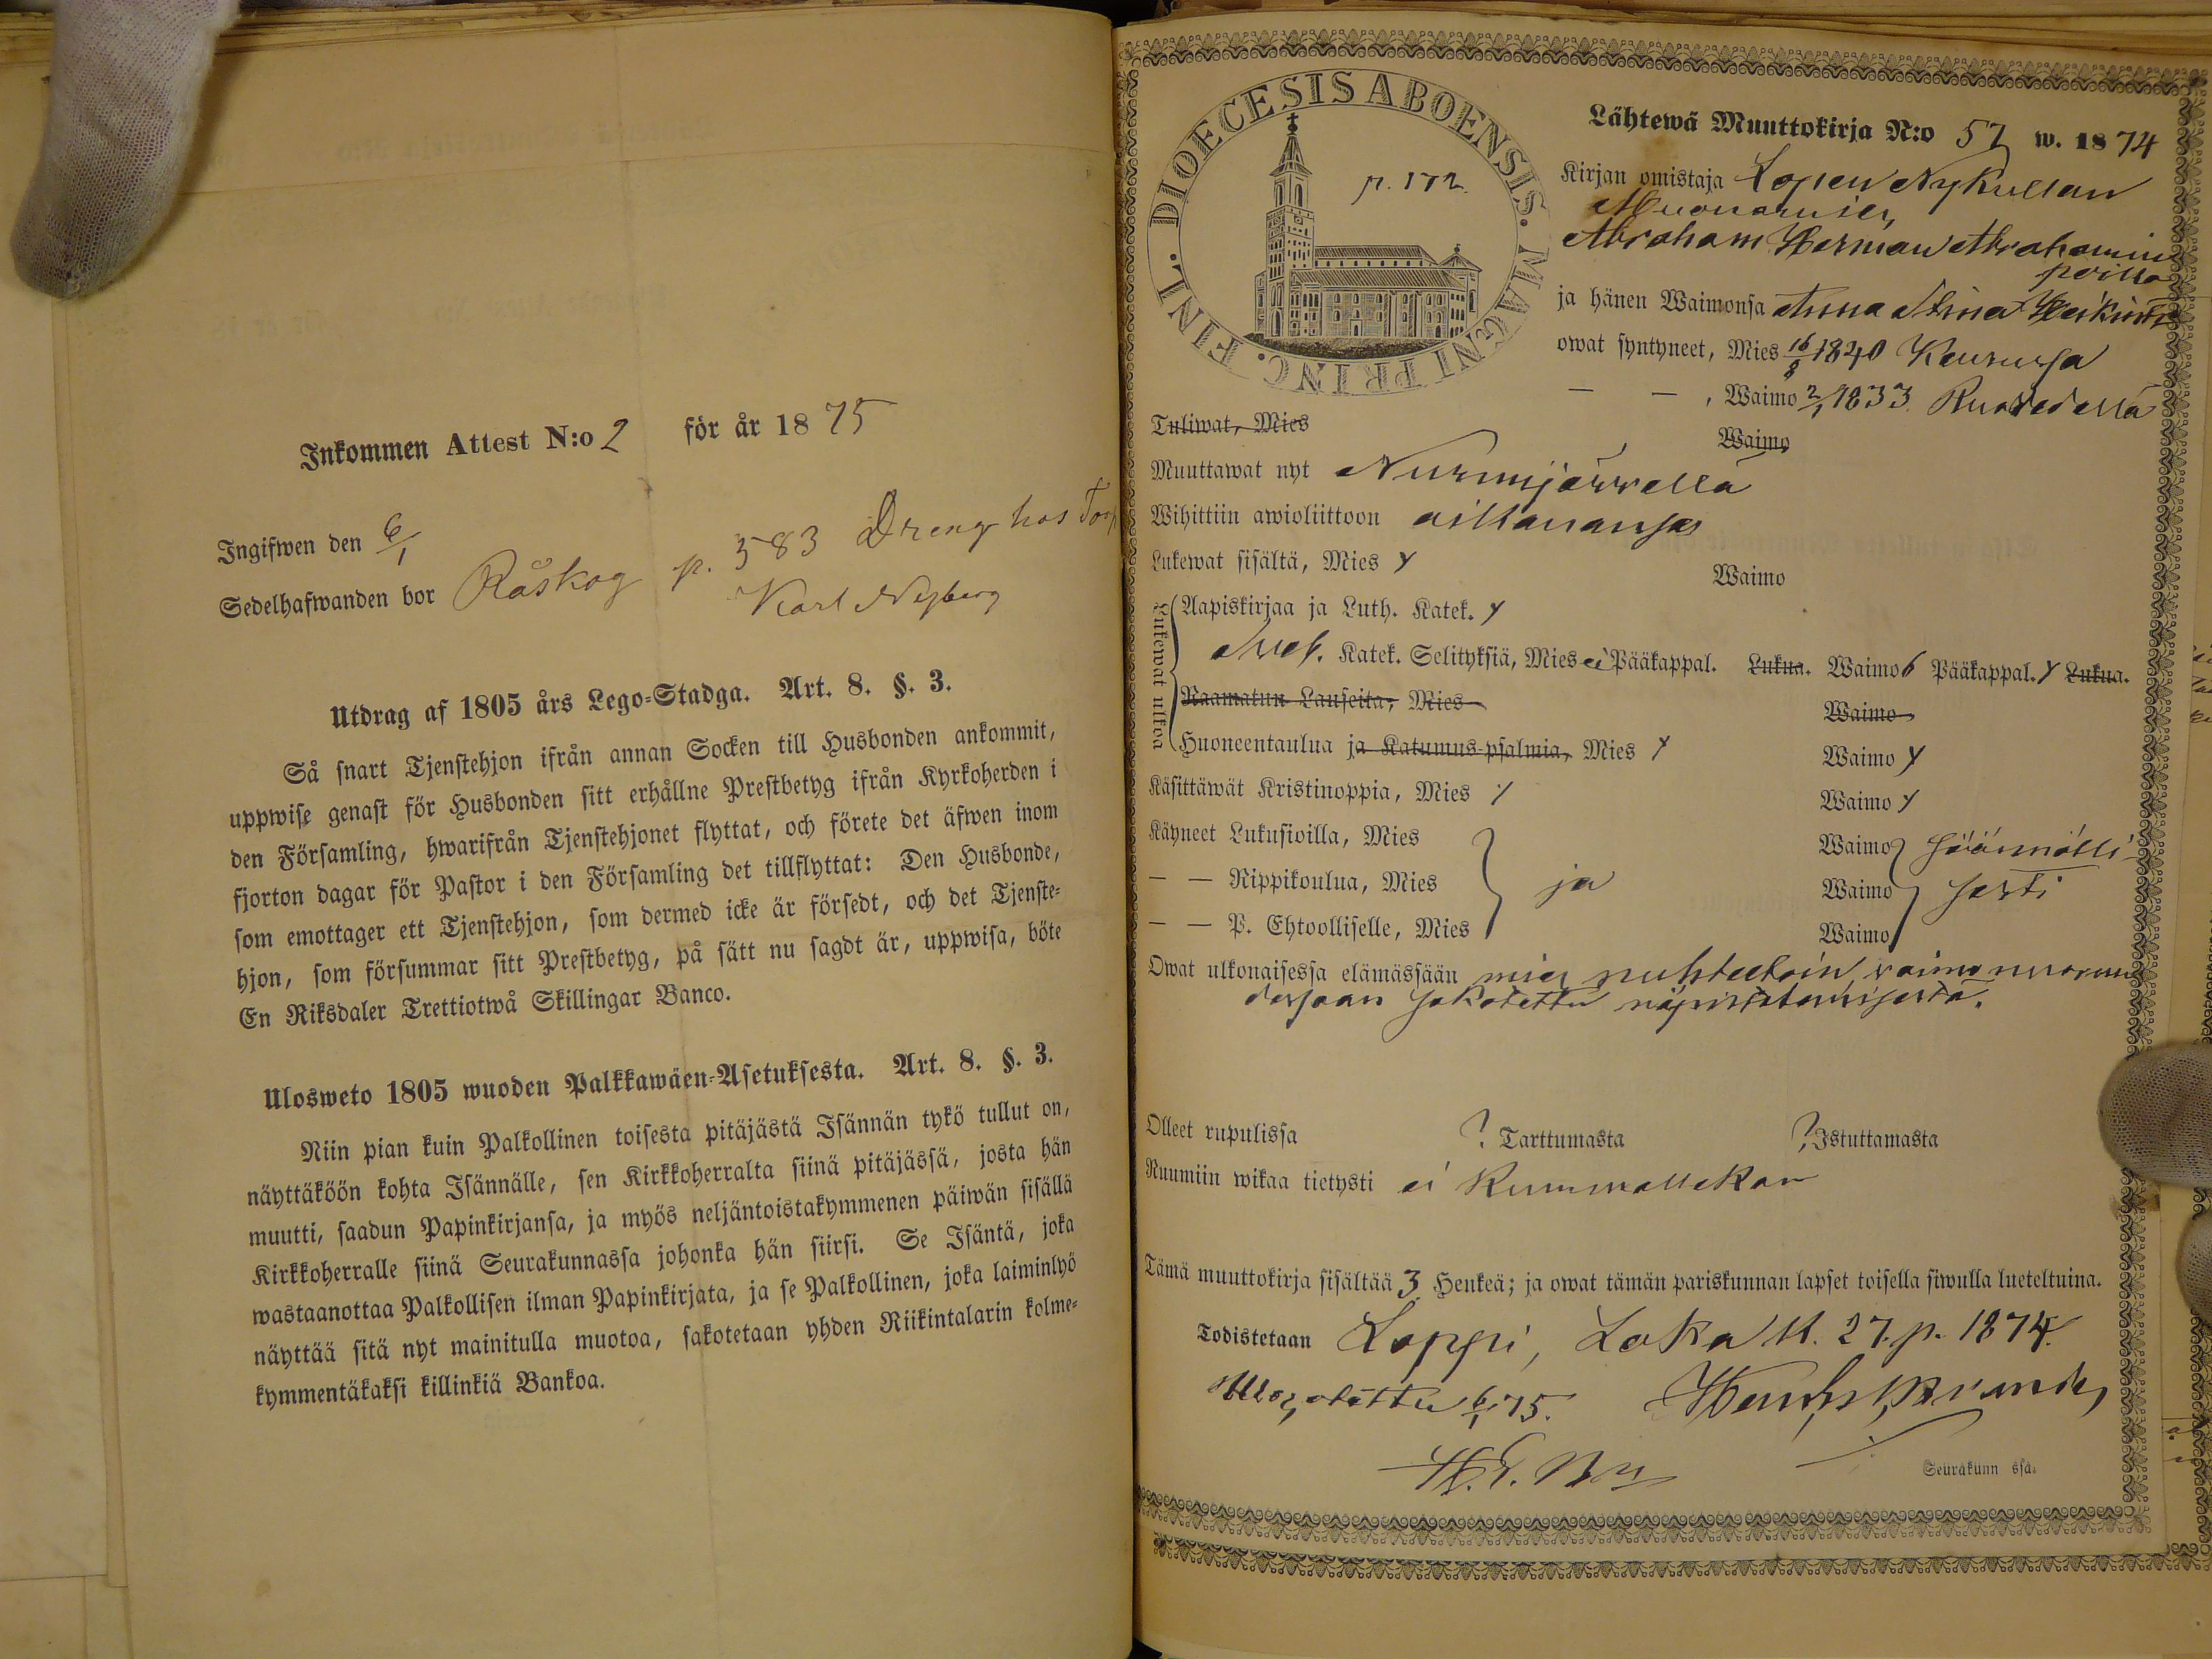 Inkommen Attest N:o 2 för år 1875
Ingifwen den 6/1
Sedelhafwanden bor Råskog p. 583 Dreng hos Torp
Karl Nyberg
Utdrag af 1805 års Lego-Stadga. Art. 8. §. 3.
Så snart Tjenstehjon ifrån annan Socken till Husbonden ankommit,
uppwise genast för Husbonden sitt erhållne Prestbetyg ifrån Kyrkoherden i
den Församling, hwarifrån Tjenstehjonet flyttat, och förete det äfwen inom
fjorton dagar för Pastor i den Församling det tillflyttat: Den Husbonde,
som emottager ett Tjenstehjon, som dermed icke är försedt, och det Tjenste-
hjon, som försummar sitt Prestbetyg, på sätt nu sagdt är, uppwisa, böte
En Riksdaler Trettiotwå Skillingar Banco.
Ulosweto 1805 wuoden Palkkawäen-Asetuksesta. Art. 8. §. 3.
Niin pian kuin Palkollinen toisesta pitäjästä Isännän tykö tullut on,
näyttäköön kohta Isännälle, sen Kirkkoherralta siinä pitäjässä, josta hän
muutti, saadun Papinkirjansa, ja myös neljäntoistakymmenen päiwän sisällä
Kirkkoherralle siinä Seurakunnassa johonka hän siirsi. Se Isäntä, joka
wastaanottaa Palkollisen ilman Papinkirjata, ja se Palkollinen, joka laiminlyö
näyttää sitä nyt mainitulla muotoa, sakotetaan yhden Riikintalarin kolme-
kymmentäkaksi killinkiä Bankoa.
DIOECESIS ABOENSIS. MAGNI PRINC. FINL.
p. 172.
Lähtewä Muuttokirja N:o 57 w. 1874
Kirjan omistaja Lopen Nykullan
Muonamies,
Abraham Herman Abrahamin
poika
ja hänen Waimonsa Anna Stina Heikint
owat syntyneet, Mies 16/8 1840 Keurussa
— — , Waimo 2/1 1833 Ruovedellä
Tuliwat, Mies Waimo
Muuttawat nyt Nurmijärvellä
Wihittiin awioliittoon
Lukewat sisältä, Mies y Waimo
Lukewat ulkoa
Aapiskirjaa ja Luth. Katek. y
Sveb. Katek. Selityksiä, Mies ei Pääkappal. Lukua. Waimo 6 Pääkappal. y Lukua.
Raamatun Lauseita, Mies Waimo
Huoneentaulua ja Katumus-psalmia, Mies y Waimo y
Käsittäwät Kristinoppia, Mies y Waimo y
Käyneet Lukusioilla, Mies Waimo säännölli-
— — Rippikoulua, Mies ja Waimo sesti
— — P. Ehtoolliselle, Mies Waimo
Owat ulkonaisessa elämässään mies nuhteetoin, vaimo nuoruu
dessaan sakotettu näpistämisestä.
Olleet rupulissa ? Tarttumasta ? Istuttamasta
Ruumiin wikaa tietysti ei kummallakan
Tämä muuttokirja sisältää 3 Henkeä; ja owat tämän pariskunnan lapset toisella siwulla lueteltuina.
Todistetaan Loppi, Loka k. 27. p. 1874.
Ulosotettu 6/1 75.
Seurakunn ssa.